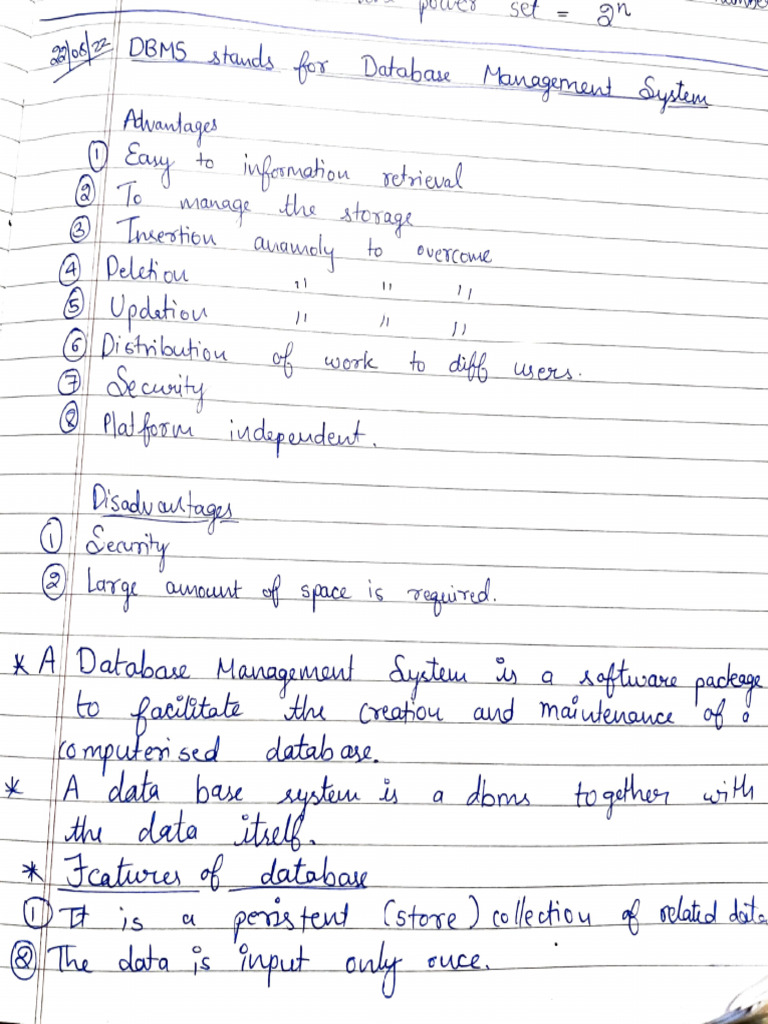 power set = 2ⁿ
22/06/22 DBMS stands for Database Management System
Advantages
① Easy to information retrieval
② To manage the storage
③ Insertion anamoly to overcome
④ Deletion " " "
⑤ Updation " " "
⑥ Distribution of work to diff users.
⑦ Security
⑧ Platform independent.
Disadvantages
① Security
② Large amount of space is required.
* A Database Management System is a software package
to facilitate the creation and maintenance of a
computerised database.
* A data base system is a dbms together with
the data itself.
* Features of database
① It is a peristent (store) collection of related data
② The data is input only once.